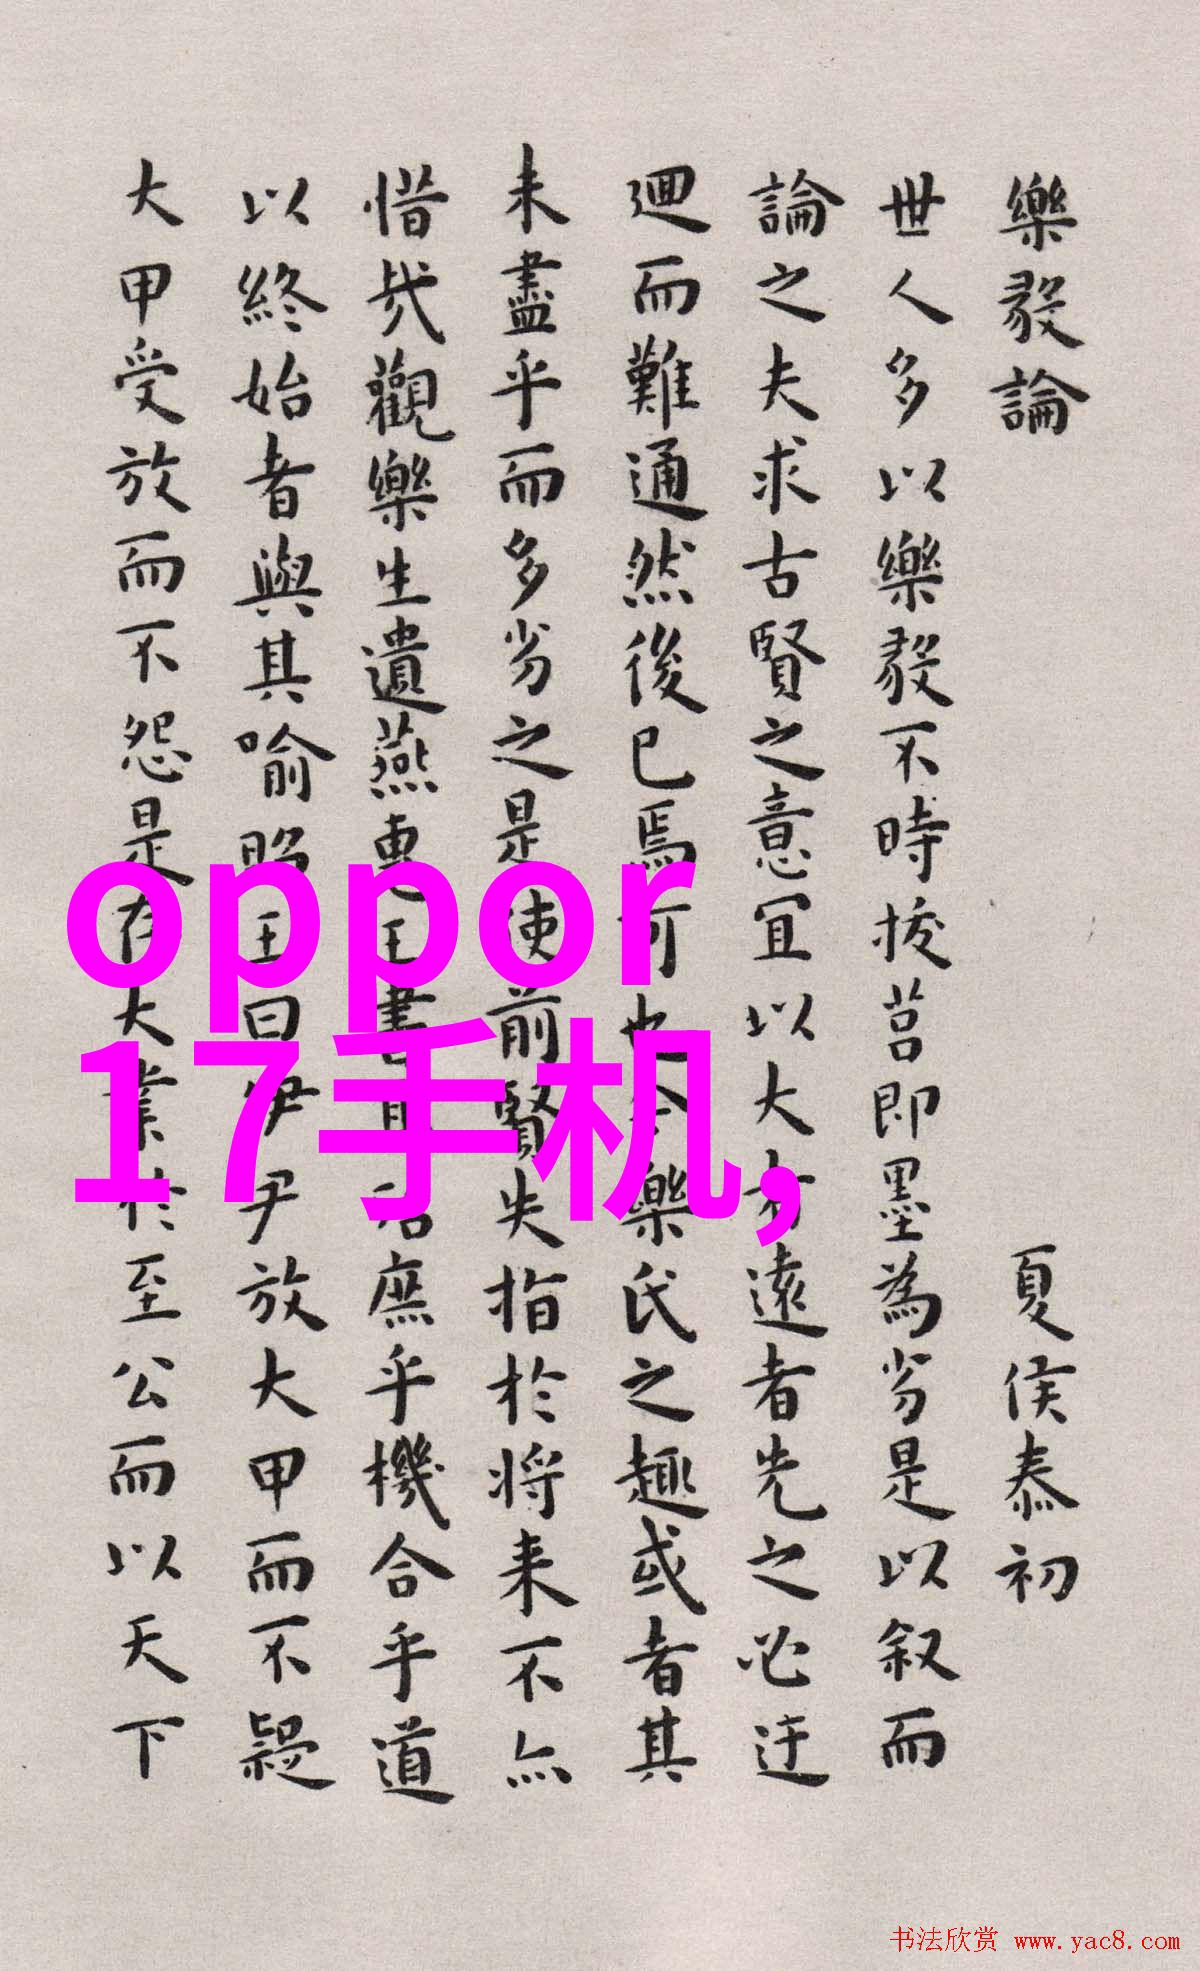 樂毅論 夏侯泰初
世人多以樂毅不時拔莒即墨為劣是以叙而
論之夫求古賢之意宜以大者遠者先之必迂
迴而難通然後已焉可也今樂氏之趣或者其
未盡乎而多劣之是使前賢失指於将来不亦
惜哉觀樂生遺燕惠王書其殆庶乎機合乎道
以終始者與其喻昭王曰伊尹放大甲而不疑
大甲受放而不怨是存大業於至公而以天下
oppor
17手机,
书法欣赏 www.yac8.com